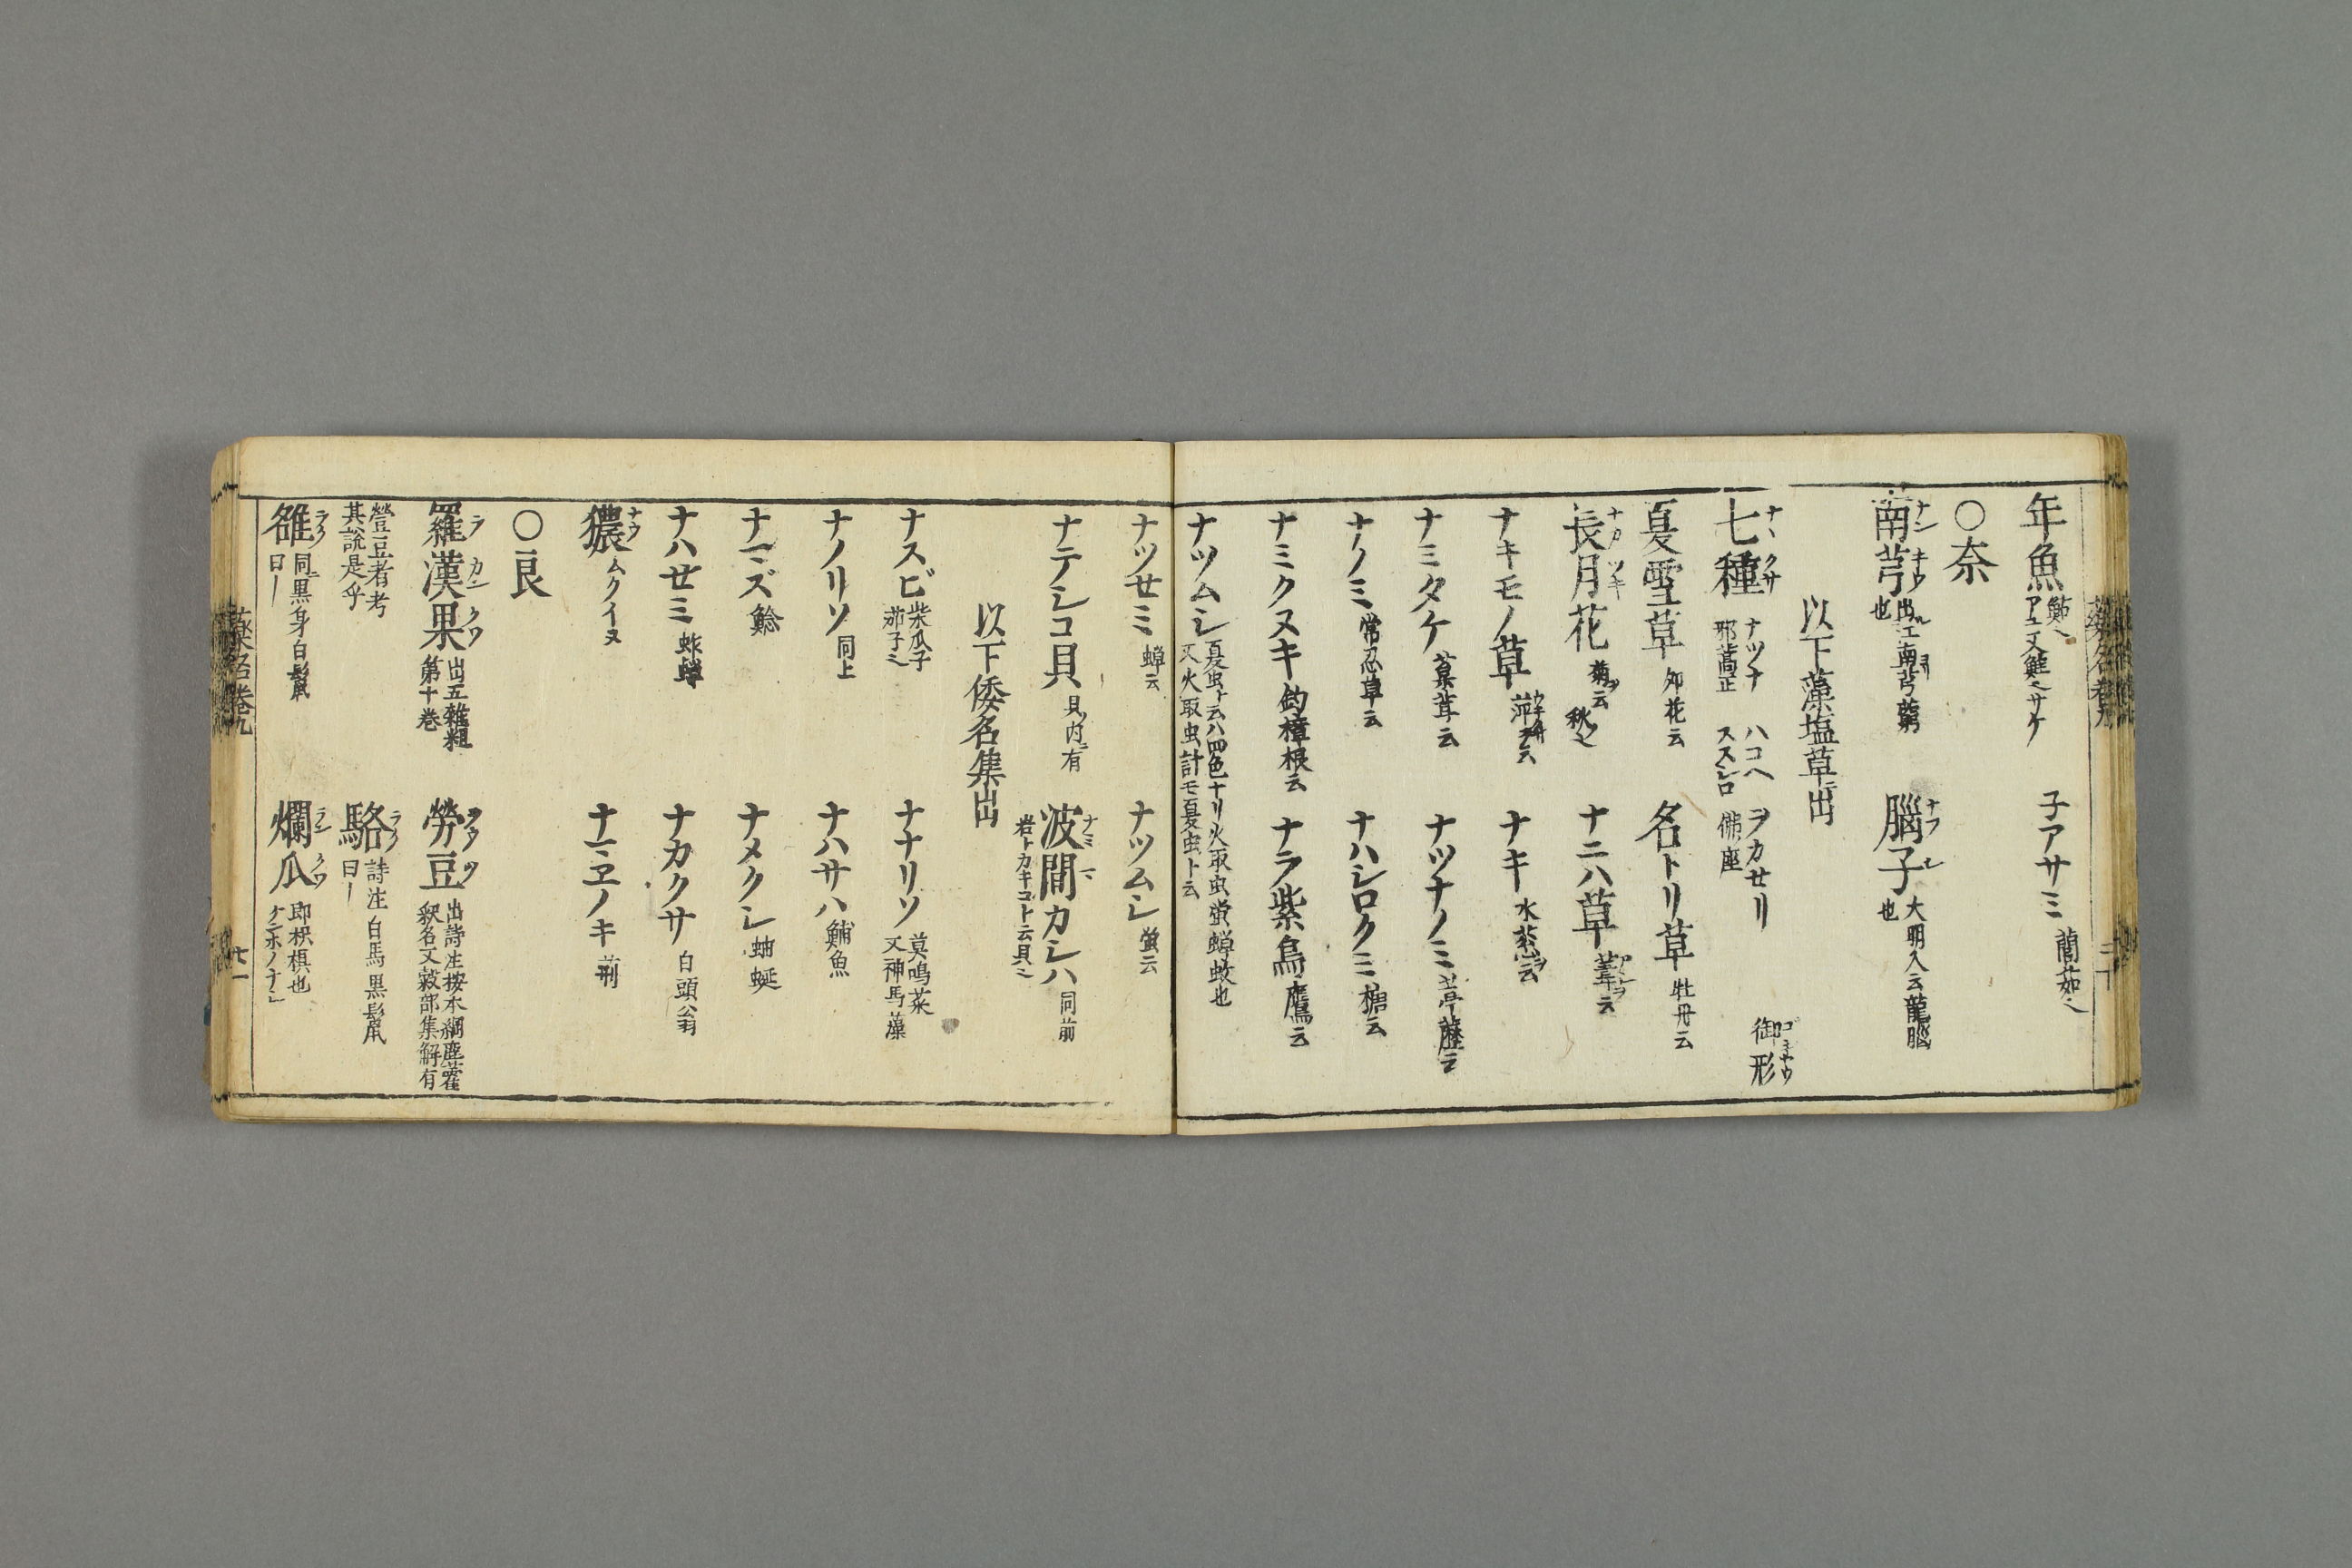 年魚 鮎也アユ又鮭也サケ 子アサミ 䕡茹也
〇奈
南芎ナンキウ 出江南芎藭也 腦子ナフシ 大明入云龍腦也
以下藻塩草ニ出
七種ナヽクサ ナツナ 邪蒿正 ハコヘ ススシロ ヲカセリ 佛座 御形
夏雪草 卯花云 名トリ草 牡丹云
長月花ナカツキ 菊ヲ云秋也 ナニハ草 葦ヲ云
ナキモノ草 萍云 ナキ 水葱ヲ云
ナミタケ 菓茸云 ナツナノミ 葶藶云
ナノミ 常忍草云 ナハシロクミ 云
ナミクヌキ 釣樟根云 ナラ紫鳥 鷹云
ナツムシ 夏虫ト云ハ四色ナリ火取虫蛍蝉蚊也
又火取虫計モ夏虫ト云
ナツセミ 蝉云 ナツムシ 蛍云
ナテシコ貝 貝ノ内ニ有 波間カシハ 同前
岩トカキコト云貝也
以下倭名集ニ出
ナスビ 紫瓜子 茄子也 ナナリソ 莫鳴菜 又神馬藻
ナノリソ 同上 ナハサハ 鯆魚
ナマズ 鯰 ナメクシ 蚰蜒
ナハセミ 蚱蟬 ナカクサ 白頭公羽
獳ナウ ムクイヌ ナマヱノキ 荊
〇良
羅漢果ラカンクワ 出五雜粗第十巻 勞豆 出詩注按本綱鹿藿釈名又穀部集解有
䝁豆者考其說是乎 駱ラク 詩注白馬黒鬣曰ー
雒ラク 同ニ黒身白鬣曰ー 爛瓜ランクワ 即枳椇也ケンホノナシ
藥名巻九
廿一